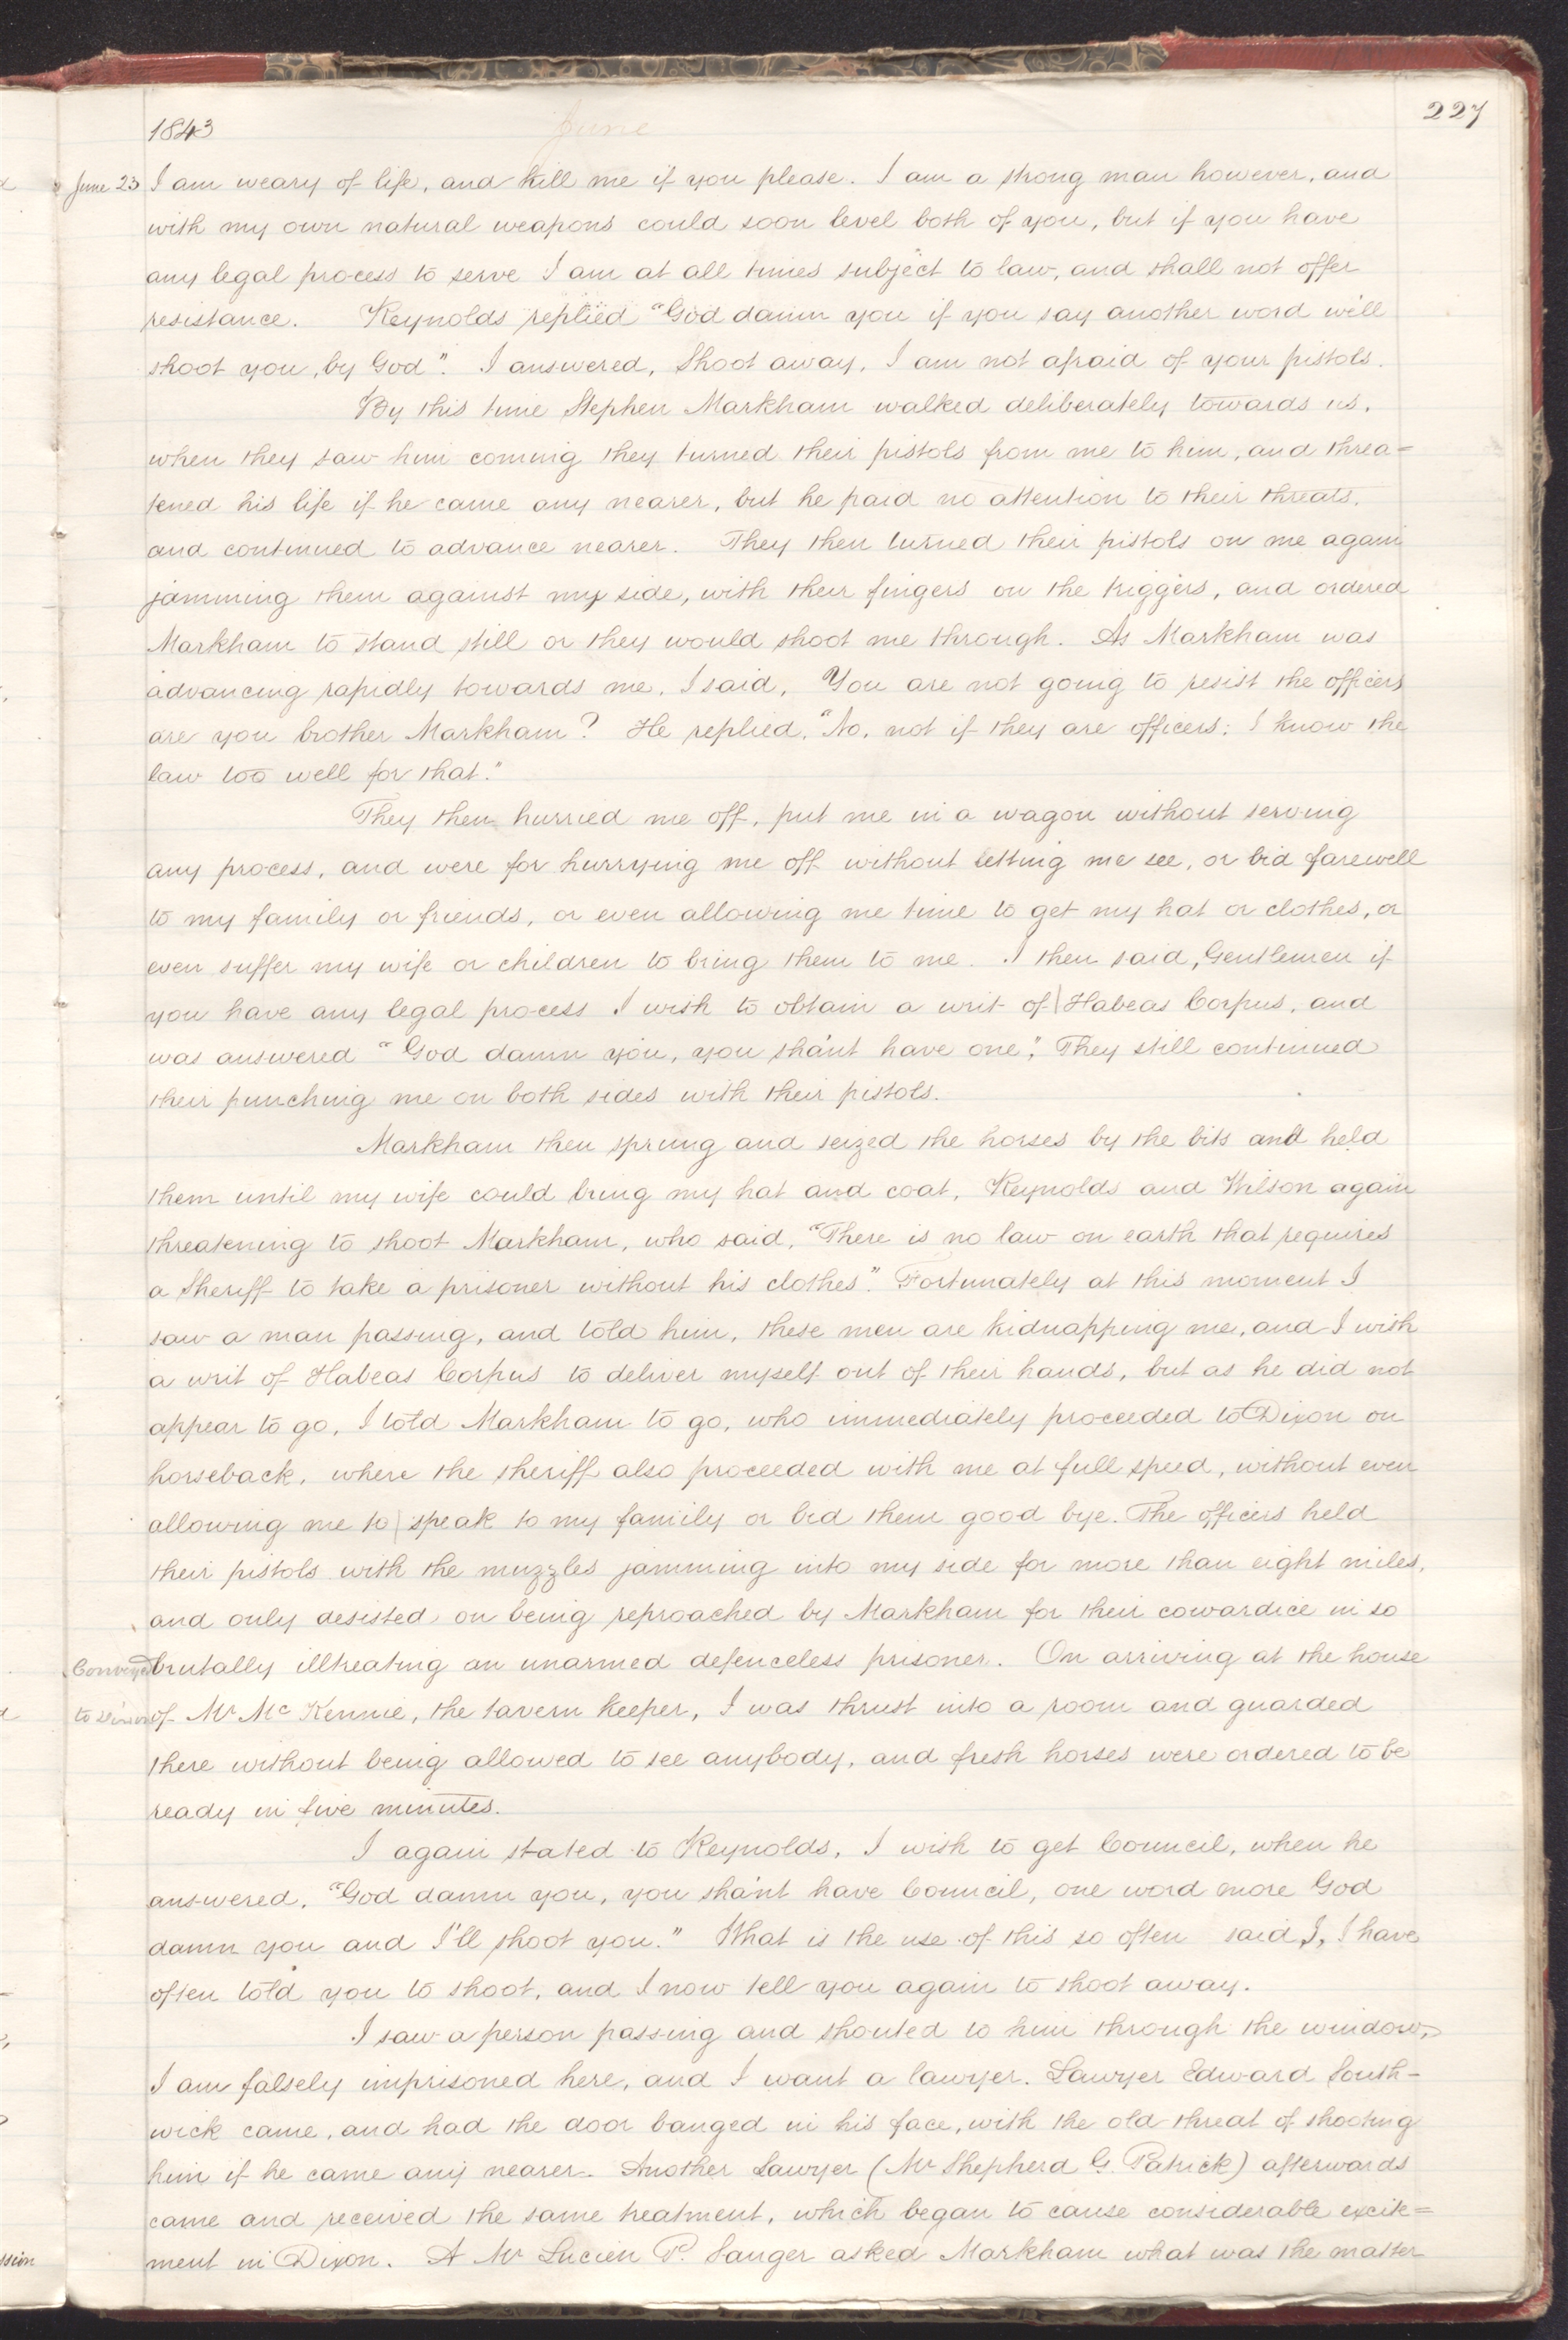 227
1843
June
June 23
I am weary of life, and kill me if you please. I am a strong man however, and
with my own natural weapons could soon level both of you, but if you have
any legal process to serve I am at all times subject to law, and shall not offer
resistance. Keynolds replied "God damn you if you say another word we'll
shoot you, by God". I answered, Shoot away, I am not afraid of your pistols.
By this time Stephen Markham walked deliberately towards us,
when they saw him coming they turned their pistols from me to him, and threa=
tened his life if he came any nearer, but he paid no attention to their threats,
and continued to advance nearer. They then turned their pistols on me again
jamming them against my side, with their fingers on the triggers, and ordered
Markham to stand still or they would shoot me through. As Markham was
advancing rapidly towards me, I said, You are not going to resist the officers
are you brother Markham? He replied, "No, not if they are officers; I know the
law too well for that."
They then hurried me off, put me in a wagon without serving
any process, and were for hurrying me off without letting me see, or bid farewell
to my family or friends, or even allowing me time to get my hat or clothes, or
even suffer my wife or children to bring them to me. I then said, Gentlemen if
you have any legal process I wish to obtain a writ of Habeas Corpus, and
was answered "God damn you, you sha'nt have one". They still continued
their punching me on both sides with their pistols.
Markham then sprung and seized the horses by the bits and held
them until my wife could bring my hat and coat, Reynolds and Wilson again
threatening to shoot Markham, who said, "There is no law on earth that requires
a Sheriff to take a prisoner without his clothes". Fortunately at this moment I
saw a man passing, and told him, these men are kidnapping me, and I wish
a writ of Habeas Corpus to deliver myself out of their hands, but as he did not
appear to go, I told Markham to go, who immediately proceeded to Dixon on
horseback, where the sheriff also proceeded with me at full speed, without even
allowing me to speak to my family or bid them good bye. The officers held
their pistols with the muzzles jamming into my side for more than eight miles,
and only desisted on being reproached by Markham for their cowardice in so
Conveyed
brutally illtreating an unarmed defenceless prisoner. On arriving at the house
to Dixon
of Mr Mc Kennie, the tavern keeper, I was thrust into a room and guarded
there without being allowed to see anybody, and fresh horses were ordered to be
ready in five minutes.
I again stated to Reynolds, I wish to get Council, when he
answered, "God damn you, you sha'nt have Council, one word more God
damn you and I'll shoot you." What is the use of this so often said I, I have
often told you to shoot, and I now tell you again to shoot away.
I saw a person passing and shouted to him through the window,
I am falsely imprisoned here, and I want a lawyer. Lawyer Edward South-
wick came, and had the door banged in his face, with the old threat of shooting
him if he came any nearer. Another Lawyer (Mr Shepherd G. Patrick) afterwards
came and received the same treatment, which began to cause considerable excite=
ment in Dixon. A Mr Lucien P. Sanger asked Markham what was the matter
ssion